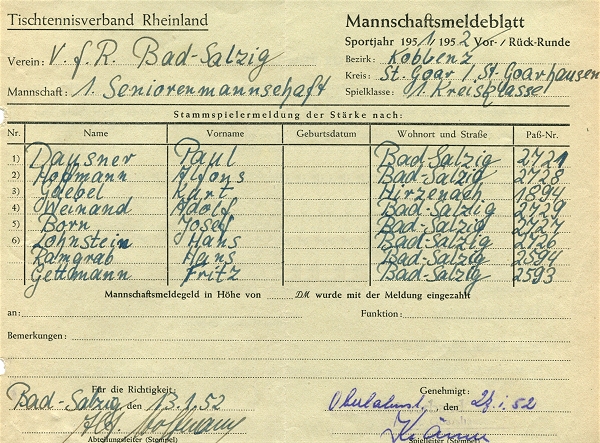 Tischtennisverband Rheinland
Mannschaftsmeldeblatt
Sportjahr 1951/1952 Vor-/Rück-Runde
Verein: V.f.R. Bad-Salzig
Bezirk: Koblenz
Kreis: St. Goar / St. Goarhausen
Mannschaft: 1. Seniorenmannschaft
Spielklasse: 1. Kreisklasse
Stammspielermeldung der Stärke nach:
Nr. Name Vorname Geburtsdatum Wohnort und Straße Paß-Nr.
1) Dausner Paul Bad-Salzig 2721
2) Hoffmann Alfons Bad-Salzig 2728
3) Goebel Kurt Hirzenach 1894
4) Weinand Adolf Bad-Salzig 2729
5) Born Josef Bad-Salzig 2727
6) Lohnstein Hans Bad-Salzig 2726
Ramgrab Hans Bad-Salzig 2594
Gettmann Fritz Bad-Salzig 2593
Mannschaftsmeldegeld in Höhe von DM wurde mit der Meldung eingezahlt
an: Funktion:
Bemerkungen:
Für die Richtigkeit: Genehmigt:
Bad-Salzig den 13.1.52 den 28.1.52
Hoffmann
Abteilungsleiter (Stempel) Spielleiter (Stempel)